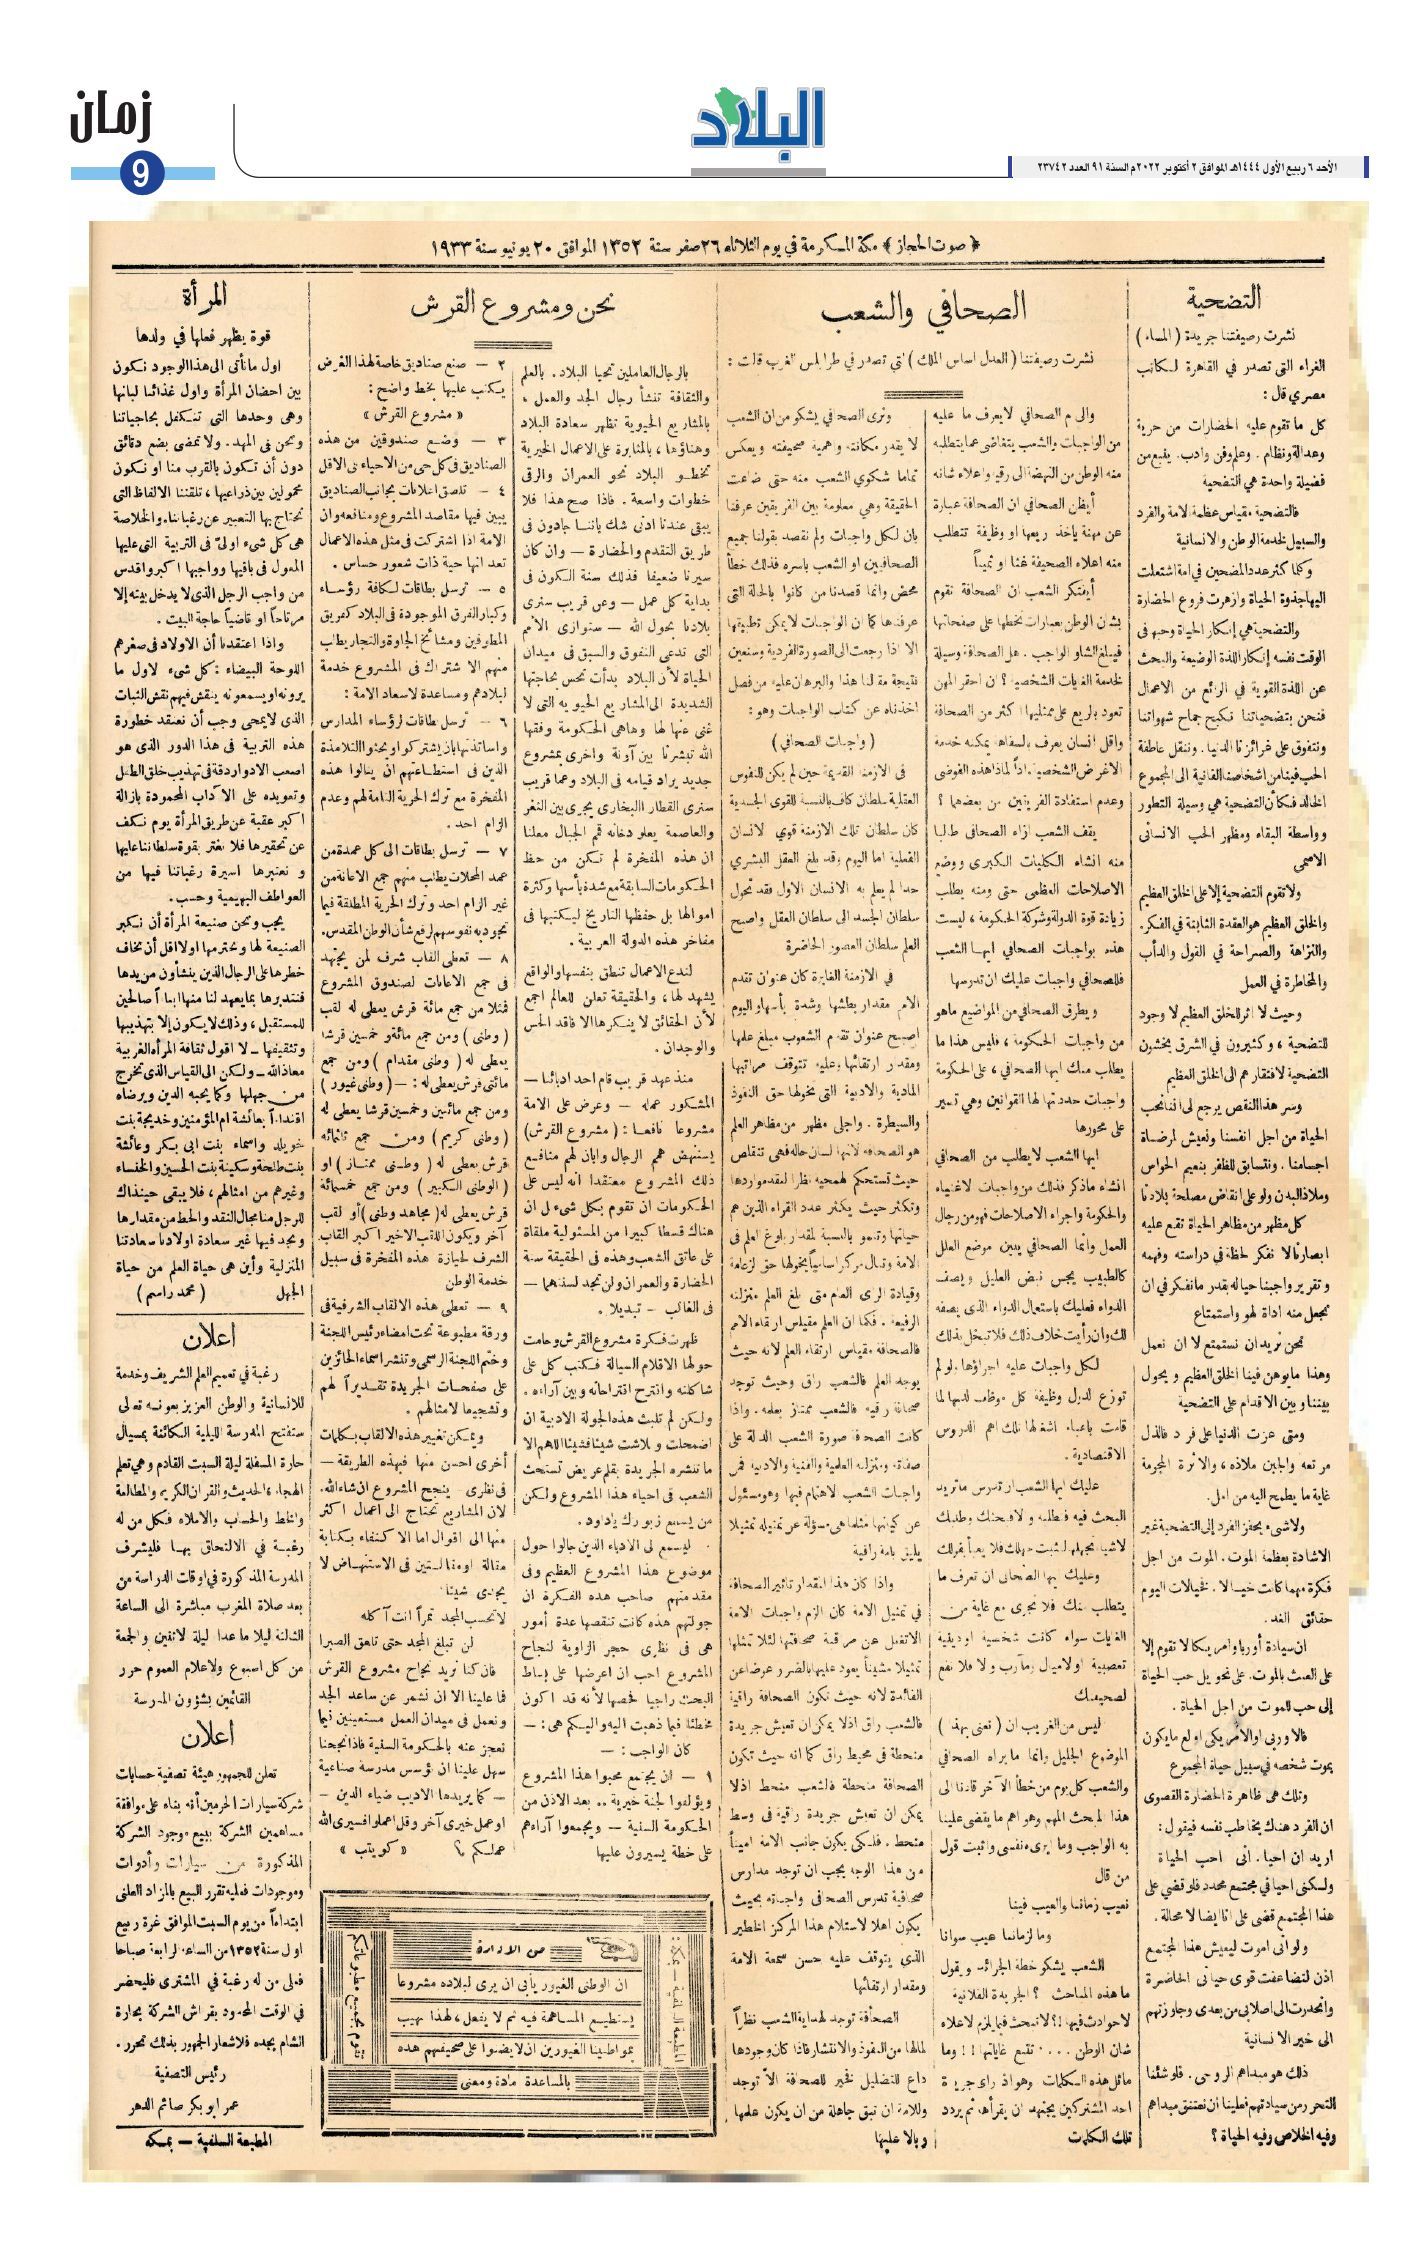 البلاد
زمان
9
الأحد ٦ ربيع الأول ١٤٤٤هـ الموافق ٢ أكتوبر ٢٠٢٢م السنة ٩١ العدد ٢٣٧٤٢
﴿ صوت الحجاز ﴾ مكة المكرمة في يوم الثلاثاء ٢٦ صفر سنة ١٣٥٢ الموافق ٢٠ يونيو سنة ١٩٣٣
التضحية
نشرت رصيفتنا جريدة ( المساء )
الغراء التى تصدر في القاهرة لكاتب
مصري قال :
كل ما تقوم عليه الحضارات من حرية
وعدالة ونظام . وعلم وفن وادب . ينبع من
فضيلة واحدة هي التضحية
فالتضحية مقياس عظمة الامة والفرد
والسبيل لخدمة الوطن والانسانية
وكما كثر عدد المضحين في امة اشتعلت
اليها جذوة الحياة وازهرت فروع الحضارة
والتضحية هي إنكار الحياة وحبها في
الوقت نفسه إنكار اللذة الوضيعة والبحث
عن اللذة القوية في الرائع من الاعمال
فنحن بتضحياتنا نكبح جماح شهواتنا
ونتفوق على غرائزنا الدنيا . وننقل عاطفة
الحب فينا من اشخاصنا الفانية الى المجموع
الخالد فكأن التضحية هي وسيلة التطور
وواسطة البقاء ومظهر الحب الانسانى
الاسمى
ولا تقوم التضحية إلا على الخلق العظيم
والخلق العظيم هو العقدة الثابتة في الفكر .
والنزاهة والصراحة في القول والدأب
والمخاطرة في العمل
وحيث لا اثر للخلق العظيم لا وجود
للتضحية ، وكثيرون في الشرق يخشون
التضحية لافتقارهم الى الخلق العظيم
وسر هذا النقص يرجع لى اننا نحب
الحياة من اجل انفسنا ونعيش لمرضاة
اجسامنا . ونتسابق للظفر بنعيم الحواس
وملاذ البدن ولو على انقاض مصلحة بلادنا
كل مظهر من مظاهر الحياة تقع عليه
ابصارنا لا نفكر لحظة في دراسته وفهمه
وتقرير واجبنا حياله بقدر ما نفكر في ان
نجعل منه اداة لهو واستمتاع
نحن نريد ان نستمتع لا ان نعمل
وهذا ما يوهن فينا الخلق العظيم ويحول
بيننا وبين الاقدام على التضحية
ومتى عزت الدنيا على فرد فالذل
مرتعه والجبن ملاذه ، والأثرة المجرمة
غاية ما يطمح اليه من امل .
ولا شيء يحفز الفرد إلى التضحية غير
الاشادة بعظمة الموت . الموت من اجل
فكرة مهما كانت خيالا . فخيالات اليوم
حقائق الغد .
ان سيادة أوربا وامريكا لا تقوم إلا
على العبث بالموت . على تحويل حب الحياة
إلى حب للموت من اجل الحياة .
فالاوربى او الأمريكى اولع ما يكون
بموت شخصه في سبيل حياة المجموع
وتلك هى ظاهرة الحضارة القصوى
ان الفرد هناك يخاطب نفسه فيقول :
اريد ان احيا . انى احب الحياة
ولكنى احيا في مجتمع محدد فلو قضي على
هذا المجتمع قضي على انا ايضا لا محالة .
ولو انى اموت ليعيش هذا المجتمع
اذن لتضاعفت قوى حياتى الحاضرة
وانحدرت الى اصلابى من بعدى وجاوزتهم
الى خير الانسانية
ذلك هو مبداهم الروحى . فلو شئنا
التحرر من سيادتهم فعلينا ان نعتنق مبداهم
وفيه الخلاص وفيه الحياة ؟
الصحافي والشعب
نشرت رصيفتنا ( العدل اساس الملك ) التي تصدر في طرابلس الغرب قالت :
والى م الصحافي لا يعرف ما عليه
من الواجبات والشعب يتغاضى عما يتطلبه
منه الوطن من النهضة الى رقيه واعلاء شانه
أيظن الصحافي ان الصحافة عبارة
عن مهنة ياخذ ريعها او وظيفة تتطلب
منه اعلاء الصحيفة غثا او ثمينا
أيفتكر الشعب ان الصحافة تقوم
بشان الوطن بعبارات يخطها على صفحاتها
لخدمة الغايات الشخصية ؟ ان احقر المهن
تعود بالريع على ممثليها اكثر من الصحافة
وعدم استفادة الفريقين من بعضهما ؟
يقف الشعب ازاء الصحافي طالبا
منه انشاء الكليات الكبرى ووضع
الاصلاحات العظمى حتى ومنه يطلب
زيادة قوة الدولة وشركة الحكومة ، ليست
هذه بواجبات الصحافي ايها الشعب
فللصحافي واجبات عليك ان تدرسها
ويطرق الصحافي من المواضيع ما هو
من واجبات الحكومة ، فليس هذا ما
يطلب منك ايها الصحافي ، على الحكومة
واجبات حددتها لها القوانين وهي تسير
على محورها
ايها الشعب لا يطلب من الصحافي
انشاء ما ذكر فذلك من واجبات الاغنياء
والحكومة واجراء الاصلاحات فهو من رجال
العمل وانما الصحافي يبين موضع العلل
كالطبيب يجس نبض العليل ويصف
الدواء فعليك باستعمال الدواء الذى يصفه
لك وان رأيت خلاف ذلك فلا تبخل بذلك
لكل واجبات عليه اجراؤها . لو لم
الاقتصادية .
ليس من الغريب ان ( نعنى بهذا )
الموضوع الجليل وانما ما يراه الصحافي
والشعب كل يوم من خطأ الآخر قادنا الى
هذا المبحث المهم وهو اهم ما يقضى علينا
به الواجب وما يرى نفسى واثبت قول
من قال
نعيب زماننا والعيب فينا
وما لزماننا عيب سوانا
الشعب يشكو خطة الجرائد ويقول
ما هذه المباحث ؟ الجريدة الفلانية
احد المشتركين يجتهد ان يقرأها ثم يردد
تلك الكلمات
ونرى الصحافي يشكو من ان الشعب
لا يقدر مكانته واهمية صحيفته وبعكس
تماما شكوي الشعب منه حتى ضاعت
الحقيقة وهي معلومة بين الفريقين عرفنا
بان لكل واجبات ولم نقصد بقولنا جميع
الصحافيين او الشعب باسره فذلك خطأ
محض وانما قصدنا من كانوا بالحالة التى
عرفنا كما ان الواجبات لا يمكن تطبيقها
الا اذا رجعت الى الصورة الفردية وسنعين
نتيجة مقالنا هذا والبرهان عليه من فصل
اخذناه عن كتاب الواجبات وهو :
( واجبات الصحافي )
في الازمنة القديمة حين لم يكن للنفوس
العقلية سلطان كاف بالنسبة للقوى الجسدية
كان سلطان تلك الازمنة قوي الانسان
الفعلية اما اليوم وقد بلغ العقل البشري
حدا لم يعلم به الانسان الاول فقد تحول
سلطان الجسد الى سلطان العقل واصبح
العلم سلطان العصور الحاضرة
في الازمنة الغابرة كان عنوان تقدم
الامم مقدار بطشها وشدة بأسها واليوم
اصبح عنوان تقدم الشعوب مبلغ علمها
ومقدار ارتقائها وعليه تتوقف مراتبها
المادية والادبية التى يخولها حق النفوذ
والسيطرة . واجلى مظهر من مظاهر العلم
هو الصحافة لانها لسان حاله فهى تتقلص
وقيادة الرأى العام متى بلغ العلم منزلته
الرفيعة . فكما ان العلم مقياس ارتقاء الامم
فالصحافة مقياس ارتقاء العلم لانه حيث
يوجد العلم فالشعب راق وحيث توجد
صحافة رقيه فالشعب ممتاز بعلمه . واذا
كانت الصحافة صورة الشعب الدالة على
صفاته ومنزلته العلمية والفنية والادبية فمن
واجبات الشعب لاهتمام فيها وهو مسئول
واذا كان هذا المقدار تاثير الصحافة
في تمثيل الامة كان الزم واجبات الامة
تمثيلا مشيناً يعود عليها بالضرر عرضا عن
الفائدة لانه حيث تكون الصحافة راقية
فالشعب راق اذ لا يمكن ان تعيش جريدة
منحطة في محيط راق كما انه حيث تكون
الصحافة منحطة فالشعب منحط اذ لا
يمكن ان تعيش جريدة راقية في وسط
منحط . فلكى يكون جانب الامة امينا
من هذا الوجه يجب ان توجد مدارس
صحافية تدرس الصحافى واجباته بحيث
يكون اهلا لاستلام هذا المركز الخطير
الذي يتوقف عليه حسن سمعة الامة
ومقدار ارتقائها
الصحافة توجد لهداية الشعب نظراً
لمالها من النفوذ والانتشار فاذا كان وجودها
داع للتضليل فخير للصحافة الا توجد
وللامة ان تبق جاهلة من ان يكون علمها
وبالا عليها
نحن ومشروع القرش
بالرجال العاملين تحيا البلاد . بالعلم
والثقافة تنشأ رجال الجد والعمل ،
بالمشاريع الحيوية تظهر سعادة البلاد
وهناؤها ، بالمثابرة على الاعمال الخيرية
تخطو البلاد نحو العمران والرقى
خطوات واسعة . فاذا صح هذا فلا
يبقى عندنا ادنى شك باننا جادون فى
طريق التقدم والحضارة — وان كان
سيرنا ضعيفا فذلك سنة الكون فى
بداية كل عمل — وعن قريب سنرى
بلادنا بحول الله — ستوازى الأمم
التى تدعى التفوق والسبق فى ميدان
الحياة لأن البلاد بدأت تحس بحاجتها
الشديدة الى المشاريع الحيويه التى لا
غنى عنها لها وهاهى الحكومة وفقها
الله تبشرنا بين آونة واخرى بمشروع
جديد يراد قيامه فى البلاد وعما قريب
سنرى القطار البخارى يجرى بين الثغر
والعاصمة يعلو دخانه قمم الجبال معلنا
ان هذه المفخرة لم تكن من حظ
الحكومات السابقة مع شدة بأسها وكثرة
اموالها بل حفظها التاريخ ليكتبها فى
مفاخر هذه الدولة العربية .
لندع الاعمال تنطق بنفسها والواقع
يشهد لها ، والحقيقة تعلن للعالم اجمع
لأن الحقائق لا ينكرها الا فاقد الحس
والوجدان .
منذ عهد قريب قام احد ادبائنا —
المشكور عمله — وعرض على الامة
مشروعا نافعا : ( مشروع القرش )
يستنهض همم الرجال وابان لهم منافع
ذلك المشروع معتقدا انه ليس على
الحكومات ان تقوم بكل شيء ل ان
هناك قسطا كبيرا من المسئولية ملقاة
على عاتق الشعب وهذه فى الحقيقة سنة
الحضارة والعمران ولن تجد لسنتهما —
فى الغالب — تبديلا .
ظهرت فكرة مشروع القرش وحامت
حولها الاقلام السيالة فكتب كل على
شاكلته واقترح اقتراحاته وبين آراءه .
ولكن لم تلبث هذه الجولة الادبية ان
اضمحلت وتلاشت شيئا فشيئا اللهم الا
ما تنشره الجريدة بقلم عريض تستحث
الشعب فى احياء هذا المشروع ولكن
من يسمع زبورك ياداود .
ليسمح لى الادباء الذين جالوا حول
موضوع هذا المشروع العظيم وفى
مقدمتهم صاحب هذه الفكرة ان
جولتهم هذه كانت تنقصها عدة أمور
هى فى نظرى حجر الزاوية لنجاح
المشروع احب ان اعرضها على بساط
البحث راجيا فحصها لأنه قد اكون
مخطئا فيما ذهبت اليه واليكم هى : —
كان الواجب : —
١ — ان يجتمع محبوا هذا المشروع
ويؤلفوا لجنة خيرية .. بعد الاذن من
الحكومة السنية — ويجمعوا آراءهم
على خطة يسيرون عليها
٢ — صنع صناديق خاصة لهذا الغرض
يكتب عليها بخط واضح :
« مشروع القرش »
٣ — وضع صندوقين من هذه
الصناديق فى كل حى من الاحياء فى الاقل
٤ — تلصق اعلانات بجانب الصناديق
يبين فيها مقاصد المشروع ومنافعه وان
الامة اذا اشتركت فى مثل هذه الاعمال
تعد انها حية ذات شعور حساس .
٥ — ترسل بطاقات لكافة رؤساء
وكبار الفرق الموجودة فى البلاد كفريق
المطوفين ومشائخ الجاوة والتجار يطلب
منهم الاشتراك فى المشروع خدمة
لبلادهم ومساعدة لاسعاد الامة :
٦ — ترسل بطاقات لرؤساء المدارس
واساتذتها بان يشتركوا ويحثوا التلامذة
الذين فى استطاعتهم ان ينالوا هذه
المفخرة مع ترك الحرية التامة لهم وعدم
الزام احد .
٧ — ترسل بطاقات الى كل عمدة من
عمد المحلات يطلب منهم جمع الاعانة من
غير الزام احد وترك الحرية المطلقة فيما
تجود به نفوسهم لرفع شأن الوطن المقدس .
٨ — تعطى القاب شرف لمن يجتهد
فى جمع الاعانات لصندوق المشروع
فمثلا من جمع مائة قرش يعطى له لقب
( وطنى ) ومن جمع مائة وخمسين قرشا
يعطى له ( وطنى مقدام ) ومن جمع
مائتى قرش يعطى له : — ( وطنى غيور )
ومن جمع مائتين وخمسين قرشا يعطى له
( وطنى كريم ) ومن جمع ثلثمائه
قرش يعطى له ( وطنى ممتاز ) او
( الوطنى الكبير ) ومن جمع خمسمائة
قرش يعطى له ( مجاهد وطنى ) أو لقب
آخر ويكون اللقب الاخير اكبر القاب
الشرف لحيازة هذه المفخرة فى سبيل
خدمة الوطن
٩ — تعطى هذه الالقاب الشرفية فى
ورقة مطبوعة تحت امضاء رئيس اللجنة
وختم اللجنة الرسمى وتنشر اسماء الحائزين
على صفحات الجريدة تقديراً لهم
وتشجيعا لامثالهم .
ويمكن تغيير هذه الالقاب بكلمات
أخرى احسن منها فبهذه الطريقة —
فى نظرى — ينجح المشروع ان شاء الله .
لان المشاريع تحتاج الى اعمال اكثر
منها الى اقوال اما الاكتفاء بكتابة
مقالة او مقالتين فى الاستنهاض لا
يجدى شيئا
لا تحسب المجد تمراً انت آكله
لن تبلغ المجد حتى تلعق الصبرا
فان كنا نريد نجاح مشروع القرش
فما علينا الا ان نشمر عن ساعد الجد
ونعمل فى ميدان العمل مستعينين فيما
نعجز عنه بالحكومة السنية فاذا نجحنا
سهل علينا ان نؤسس مدرسة صناعية
— كما يريدها الاديب ضياء الدين —
او عمل خيرى آخر وقل اعملوا فسيرى الله
عملكم ؟ « كويتب »
المطبعة السلفية — بمكة
تقوم بجميع مطبوعاتكم
من الادارة
ان الوطنى الغيور يأبى ان يرى لبلاده مشروعا
يستطيع المساهمة فيه ثم لا يفعل ، لهذا نهيب
بمواطنينا الغيورين ان لا يضنوا على صحيفتهم هذه
بالمساعدة مادة ومعنى
المرأة
قوة يظهر فعلها في ولدها
اول ما نأتى الى هذا الوجود نكون
بين احضان المرأة واول غذائنا لبانها
وهى وحدها التى تتكفل بحاجياتنا
ونحن فى المهد . ولا تمضى بضع دقائق
دون أن تكون بالقرب منا او نكون
محمولين بين ذراعيها ، تلقننا الالفاظ التى
نحتاج بها التعبير عن رغباتنا . والخلاصة
هى كل شىء اولىّ فى التربية التى عليها
المعول فى باقيها وواجبها اكبر واقدس
من واجب الرجل الذى لا يدخل بيته إلا
مرتاحاً او قاضياً حاجة البيت .
واذا اعتقدنا أن الاولاد فى صغرهم
اللوحة البيضاء : كل شىء لاول ما
يرونه او يسمعونه ينقش فيهم نقش الثبات
الذى لا يمحى وجب أن نعتقد خطورة
هذه التربية فى هذا الدور الذى هو
اصعب الادوار دقة فى تهذيب خلق الطفل
وتعويده على الآداب المحمودة بازالة
اكبر عقبة عن طريق المرأة يوم نكف
عن تحقيرها فلا نغتر بقوة سلطاننا عليها
و نعتبرها اسيرة رغباتنا فيها من
العواطف البهيمية وحسب .
يجب ونحن صنيعة المرأة أن نكبر
الصنيعة لها ونحترمها اولا اقل أن نخاف
خطرها على الرجال الذين ينشأون من يدها
فنتدبرها بما يعهد لنا منها ابناً صالحين
للمستقبل ، وذلك لا يكون إلا بتهذيبها
وتثقيفها — لا اقول ثقافة المرأه الغربية
معاذ الله — ولكن الى القياس الذى تخرج
من جهلها وكما يحبه الدين ويرضاه
اقتداءاً بعائشة ام المؤمنين وخديجة بنت
خويلد واسماء بنت ابى بكر وعائشة
بنت طلحة وسكينة بنت الحسين والخنساء
وغيرهم من امثالهم ، فلا يبقى حينذاك
للرجل منا مجال النقد والحط من مقدارها
ونجد فيها غير سعادة اولادنا سعادتنا
المنزلية وأين هى حياة العلم من حياة
الجهل ( محمد راسم )
اعلان
رغبة في تعميم العلم الشريف وخدمة
للانسانية والوطن العزيز بعونه تعالى
ستفتح المدرسة الليلية الكائنة بمسيال
حارة المسفلة ليلة السبت القادم وهي تعلم
الهجاء والحديث والقران الكريم والمطالعة
والخط والحساب والاملاء فكل من له
رغبة في الالتحاق بها فليشرف
المدرسة المذكورة في اوقات الدراسة من
بعد صلاة المغرب مباشرة الى الساعة
الثالثة ليلا ما عدا ليلة الاثنين والجمعة
من كل اسبوع ولاعلام العموم حرر
القائمين بشؤون المدرسة
اعلان
تعلن للجمهور هيئة تصفية حسابات
شركة سيارات الحرمين أنه بناء على موافقة
مساهمين الشركة ببيع موجود الشركة
المذكورة من سيارات وأدوات
وموجودات فعليه تقرر البيع بالمزاد العلنى
ابتداءاً من يوم السبت الموافق غرة ربيع
اول سنة ١٣٥٢ من الساعة الرابعة صباحا
فعلى من له رغبة في المشترى فليحضر
في الوقت المحدود بقراش الشركة بحارة
الشام بجده فلاشعار الجمهور بذلك تحرر .
رئيس التصفية
عمر ابو بكر صائم الدهر
المطبعة السلفية — بمكة